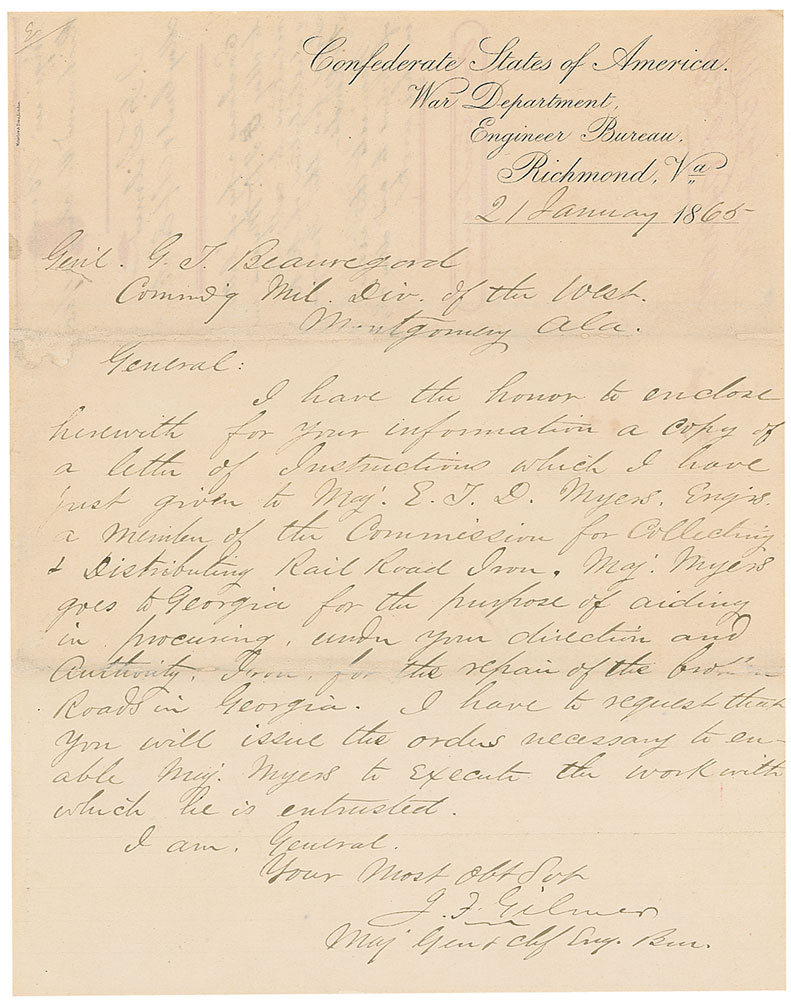 Confederate States of America.
War Department,
Engineer Bureau.
Richmond, Va
21 January 1865
Genl. G. T. Beauregard
Commd'g Mil. Div. of the West.
Montgomery Ala.
General:
I have the honor to enclose
herewith for your information a copy of
a letter of Instructions which I have
just given to Maj. E. T. D. Myers, Engrs.
a member of the Commission for Collecting
& Distributing Rail Road Iron. Maj. Myers
goes to Georgia for the purpose of aiding
in procuring, under your direction and
Authority, Iron, for the repair of the broken
Roads in Georgia. I have to request that
you will issue the orders necessary to en-
able Maj. Myers to execute the work with
which he is entrusted.
I am, General.
Your Most Obt Svt
J. F. Gilmer
Maj Gen & chf Eng. Bur.